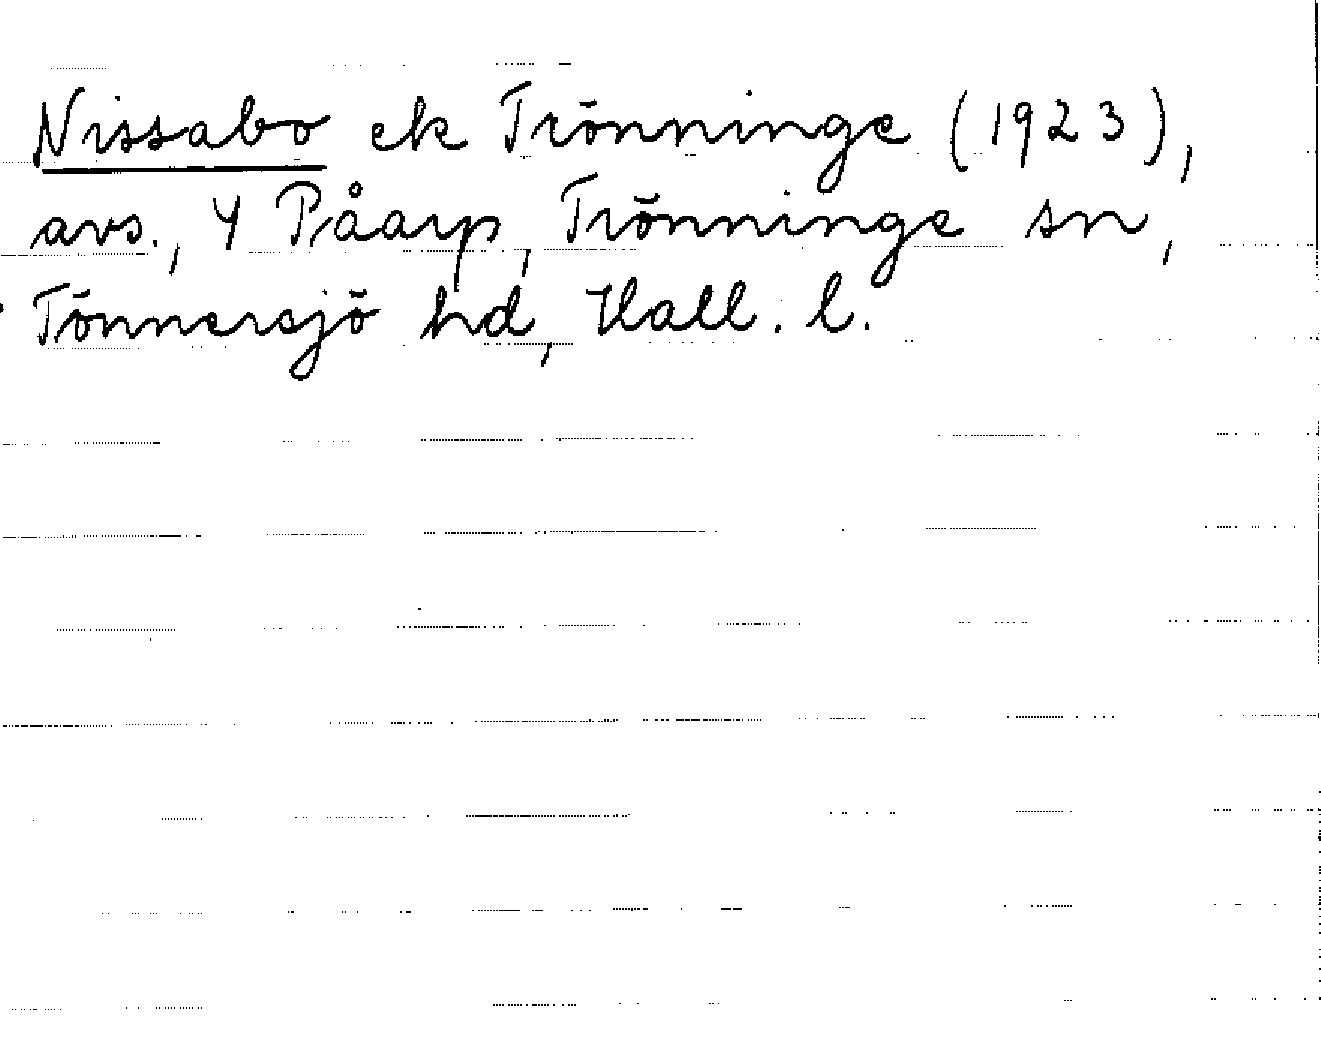 Nissabo ek Trönninge (1923),
avs., 4 Påarp, Trönninge sn,
Tönnersjö hd, Hall. l.